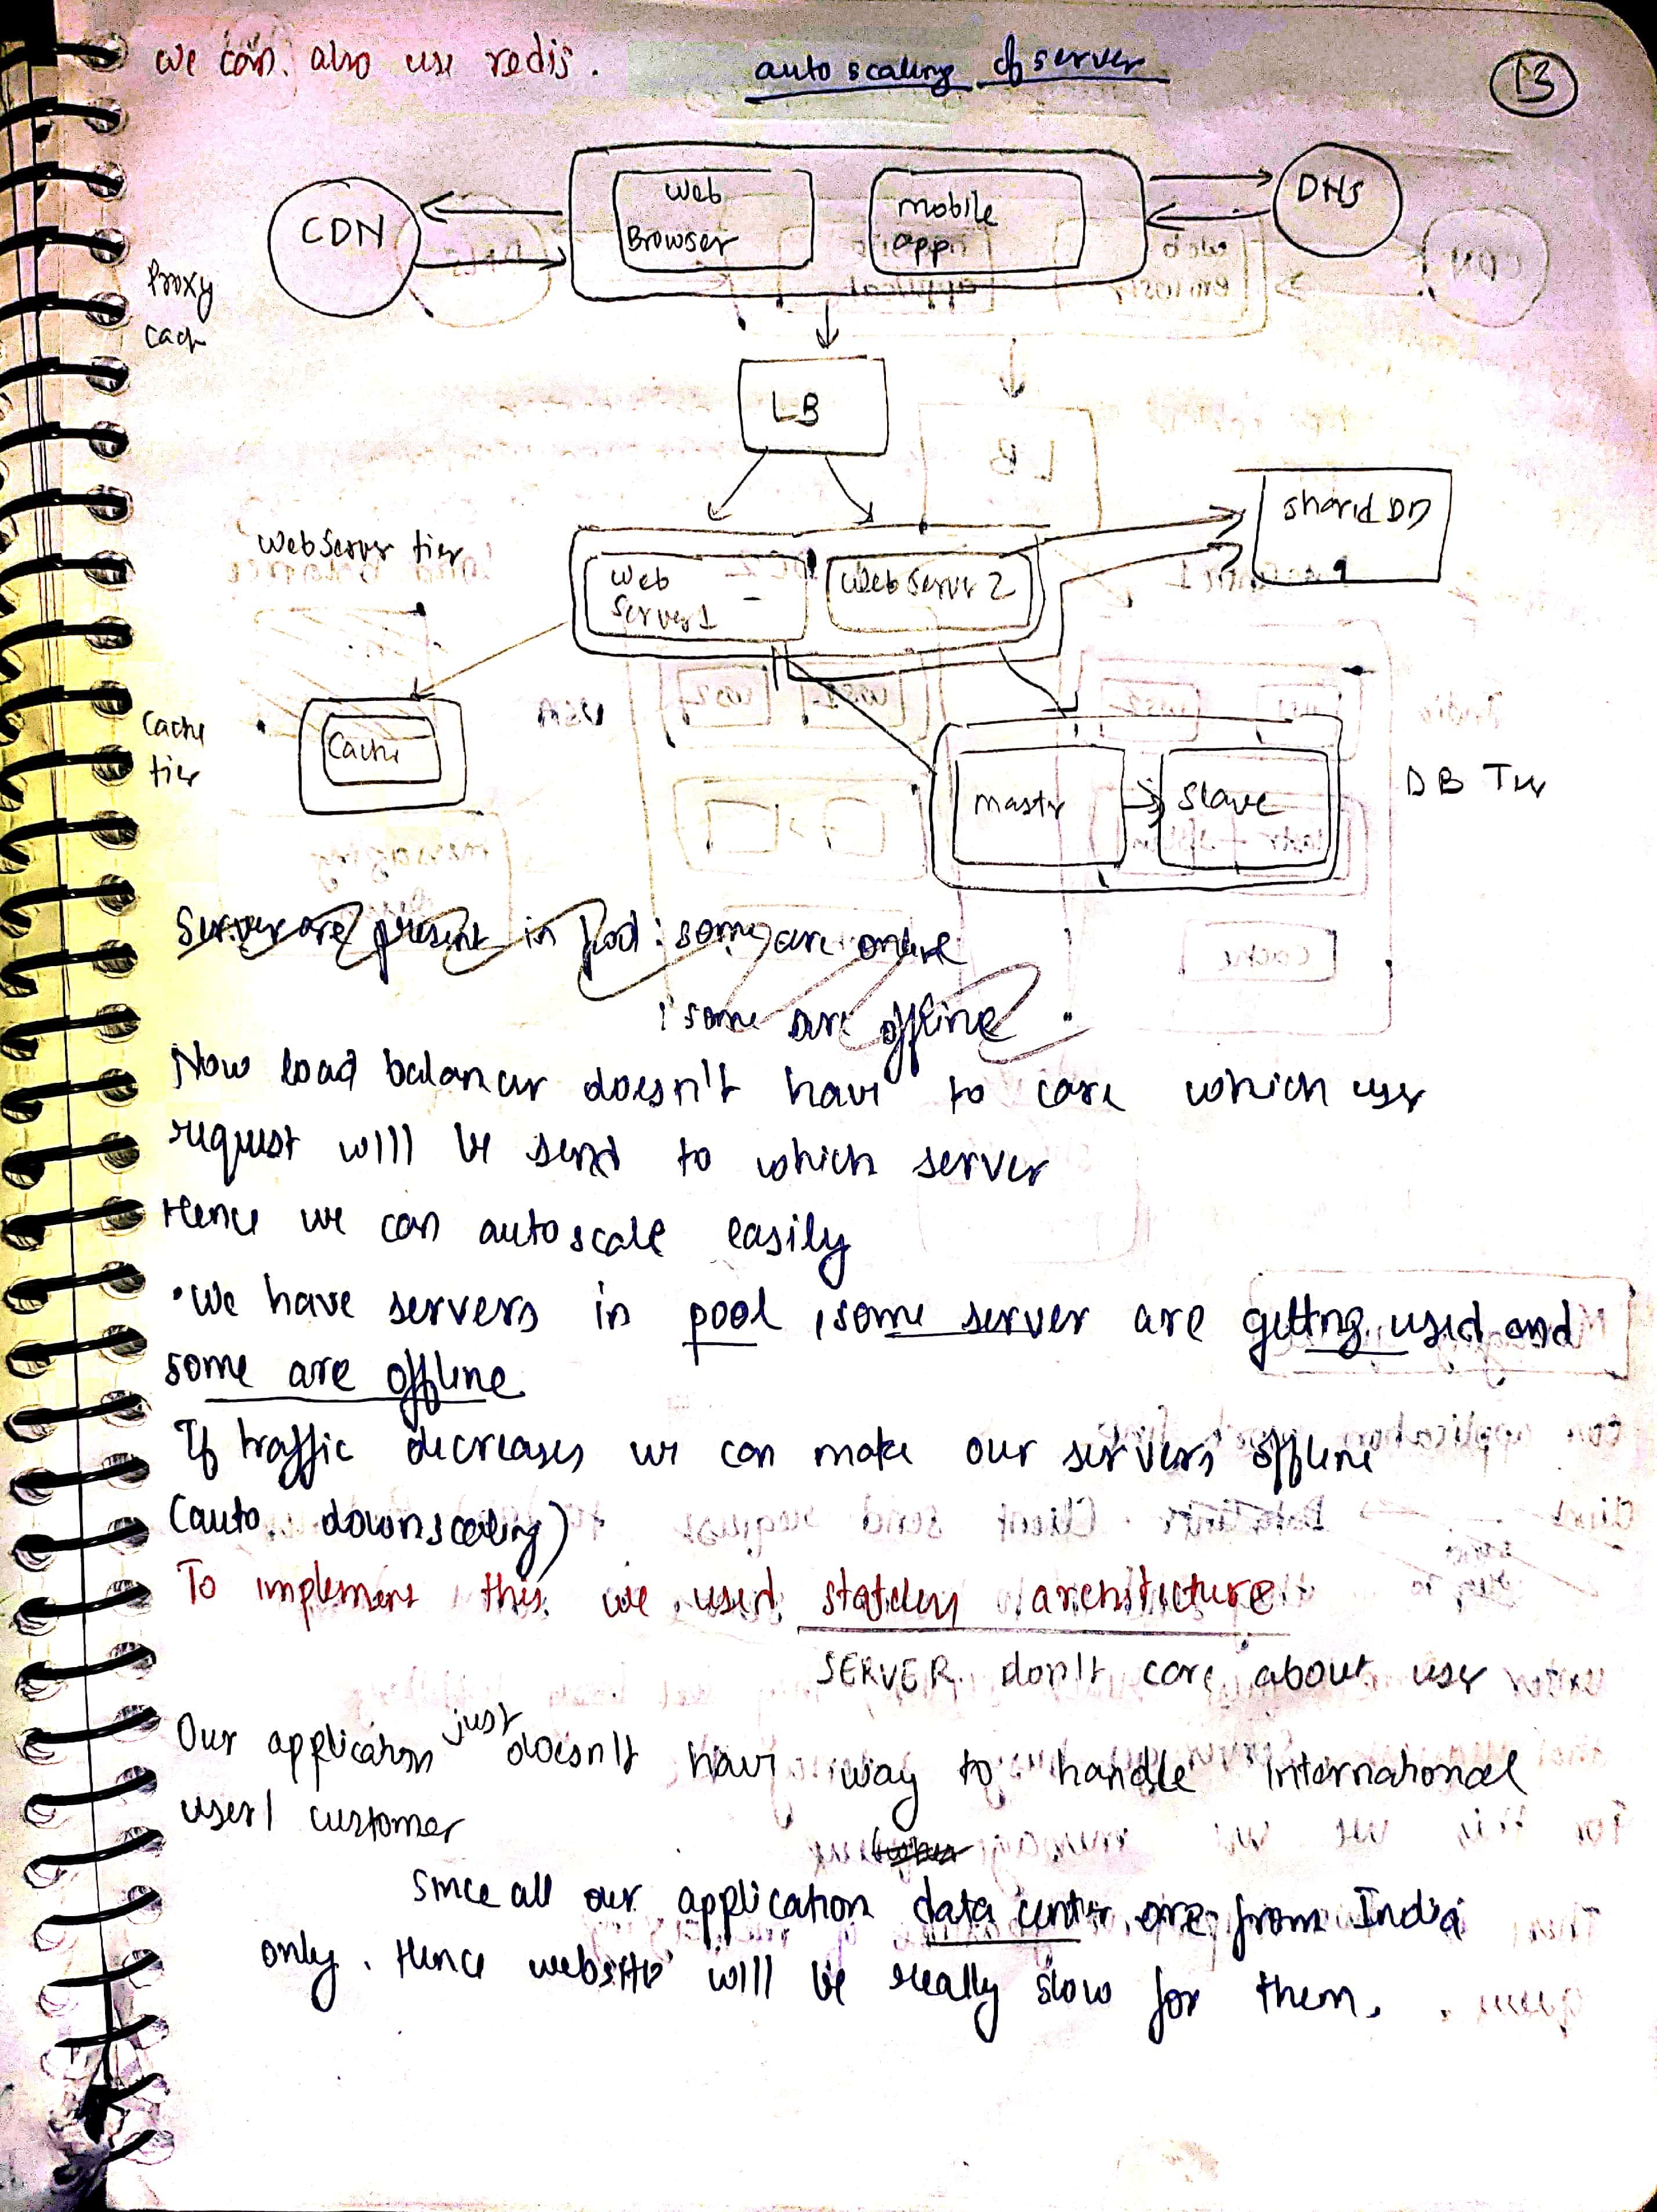 we can also use redis.
auto scaling of server
13
CDN
Web
Browser
mobile
app
DNS
Proxy
LB
shared DB
Web Server tier
Web
Server 1
Web Server 2
Cache
tier
Cache
master
slave
DB Tier
Server are present in pool : some are online
: some are offline
Now load balancer doesn't have to care which user
request will be send to which server
Hence we can autoscale easily
• We have servers in pool , some server are getting used and
some are offline
If traffic decreases we can make our servers offline
(auto downscaling)
To implement this we used stateless architecture
SERVER don't care about user
Our application just doesn't have way to handle international
user/ customer
Since all our application data center are from India
only. Hence website will be really slow for them.